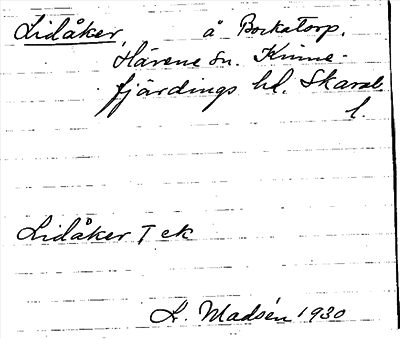 Lidåker, å Bockatorp.
Härene sn. Kinne-
fjärdings hd. Skarab.
l.
Lidåker T ek
L. Madsén 1930